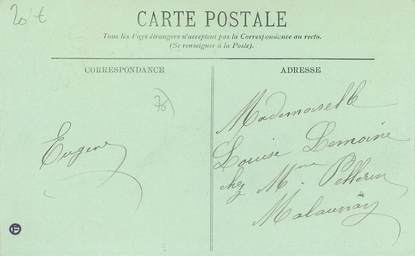 20 €
CARTE POSTALE
Tous les Pays étrangers n'acceptent pas la Correspondance au recto.
(Se renseigner à la Poste).
CORRESPONDANCE
ADRESSE
76
Eugene
Mademoiselle
Louise Lemoine
chez Mme Pellerin
Malaunay